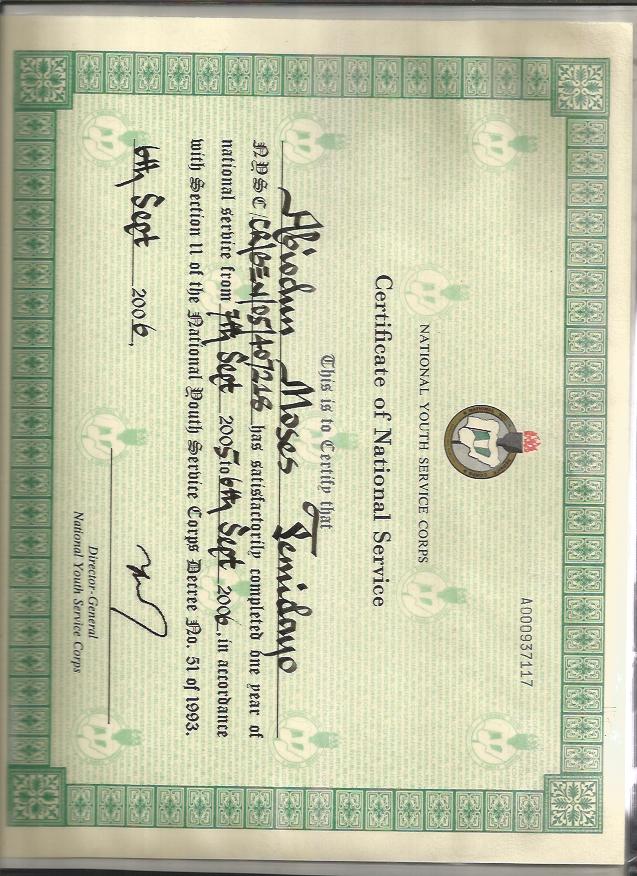 A000937117
NATIONAL YOUTH SERVICE CORPS
Certificate of National Service
This is to Certify that
Abiodun Moses Temidayo
NYSC/CR/BEN/05/407218 has satisfactorily completed one year of
national service from 7th Sept 2005 to 6th Sept 2006, in accordance
with Section 11 of the National Youth Service Corps Decree No. 51 of 1993.
6th Sept 2006,
Director-General
National Youth Service Corps